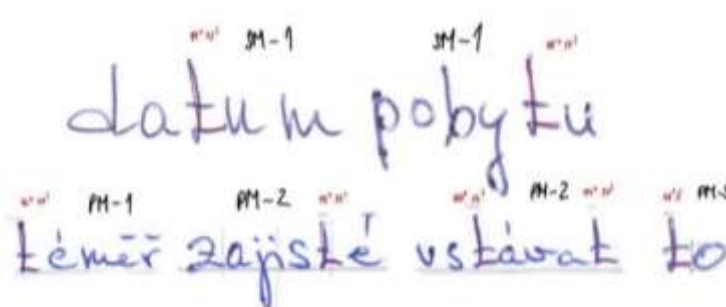 SM-1 SM-1
datum pobytu
PM-1 PM-2 PM-2
téměř zajisté vstávat to